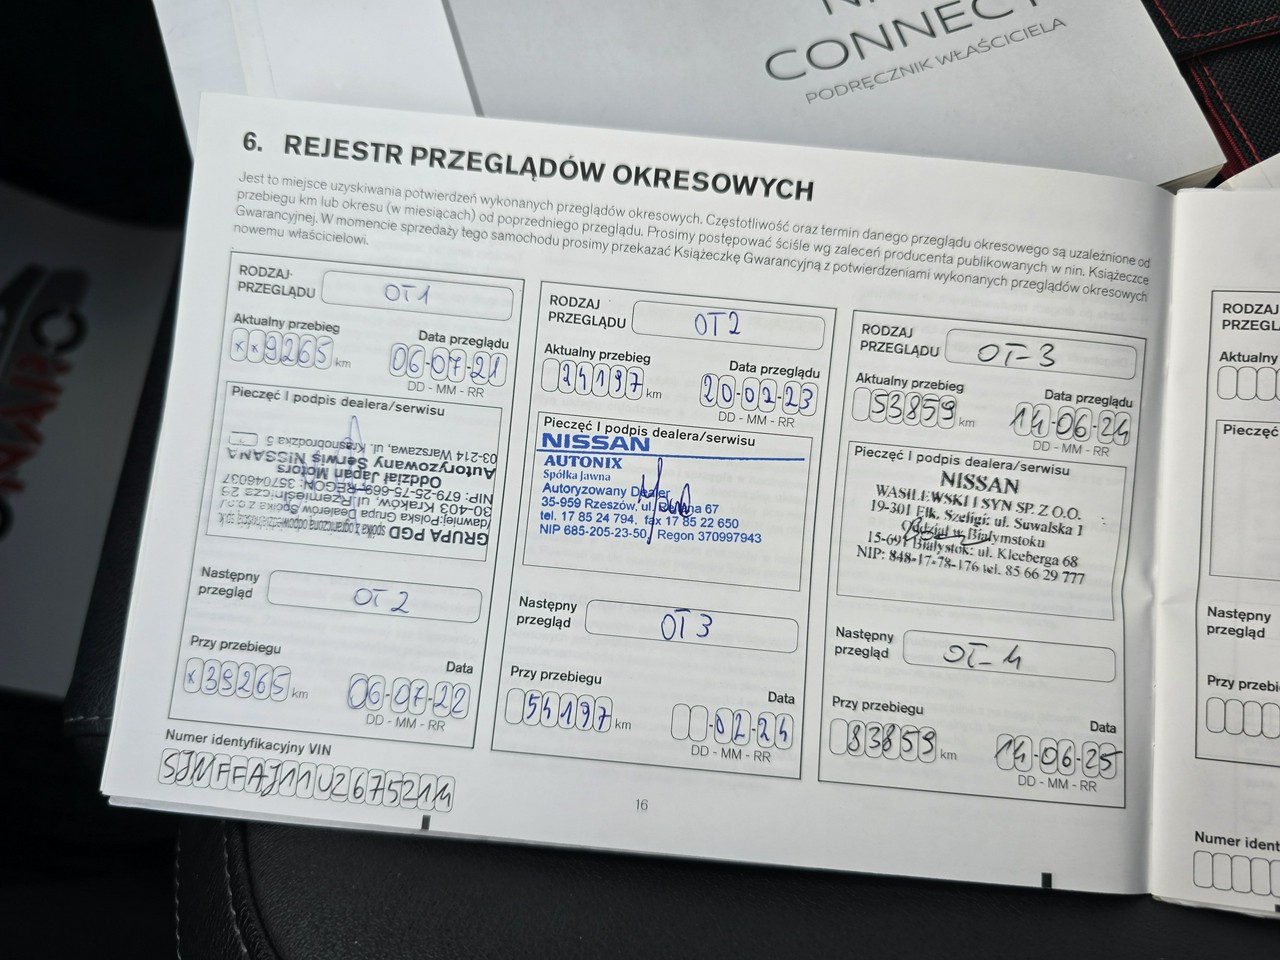 CONNECT
PODRĘCZNIK WŁAŚCICIELA
6. REJESTR PRZEGLĄDÓW OKRESOWYCH
Jest to miejsce uzyskiwania potwierdzeń wykonanych przeglądów okresowych. Częstotliwość oraz termin danego przeglądu okresowego są uzależnione od
przebiegu km lub okresu (w miesiącach) od poprzedniego przeglądu. Prosimy postępować ściśle wg zaleceń producenta publikowanych w nin. Książeczce
Gwarancyjnej. W momencie sprzedaży tego samochodu prosimy przekazać Książeczkę Gwarancyjną z potwierdzeniami wykonanych przeglądów okresowych
nowemu właścicielowi.
RODZAJ
PRZEGLĄDU OT1
Aktualny przebieg
**9265 km
Data przeglądu
06-07-21
DD - MM - RR
Pieczęć I podpis dealera/serwisu
GRUPA PGD spółka z ograniczoną odpowiedzialnością sp.k.
(dawniej: Polska Grupa Dealerów Spółka z o.o.)
30-403 Kraków, ul. Rzemieślnicza 23
NIP: 679-25-75-669, REGON: 357046037
Oddział Japan Motors
Autoryzowany Serwis NISSANA
03-214 Warszawa, ul. Krasnobrodzka 5
Następny
przegląd OT2
Przy przebiegu
*39265 km
Data
06-07-22
DD - MM - RR
RODZAJ
PRZEGLĄDU OT2
Aktualny przebieg
24197 km
Data przeglądu
20-02-23
DD - MM - RR
Pieczęć I podpis dealera/serwisu
NISSAN
AUTONIX
Spółka Jawna
Autoryzowany Dealer
35-959 Rzeszów, ul.
tel. 17 85 24 794, fax 17 85 22 650
NIP 685-205-23-50, Regon 370997943
Następny
przegląd OT3
Przy przebiegu
54197 km
Data
-02-24
DD - MM - RR
RODZAJ
PRZEGLĄDU OT-3
Aktualny przebieg
53859 km
Data przeglądu
14-06-24
DD - MM - RR
Pieczęć I podpis dealera/serwisu
NISSAN
WASILEWSKI I SYN SP. Z O.O.
19-301 Ełk, Szeligi: ul. Suwalska 1
Oddział w Białymstoku
15-691 Białystok: ul. Kleeberga 68
NIP: 848-17-78-176 tel. 85 66 29 777
Następny
przegląd OT-4
Przy przebiegu
83859 km
Data
14-06-25
DD - MM - RR
Numer identyfikacyjny VIN
SJNFFAJ11U2675214
16
RODZAJ
Aktualny
Pieczęć
Następny
przegląd